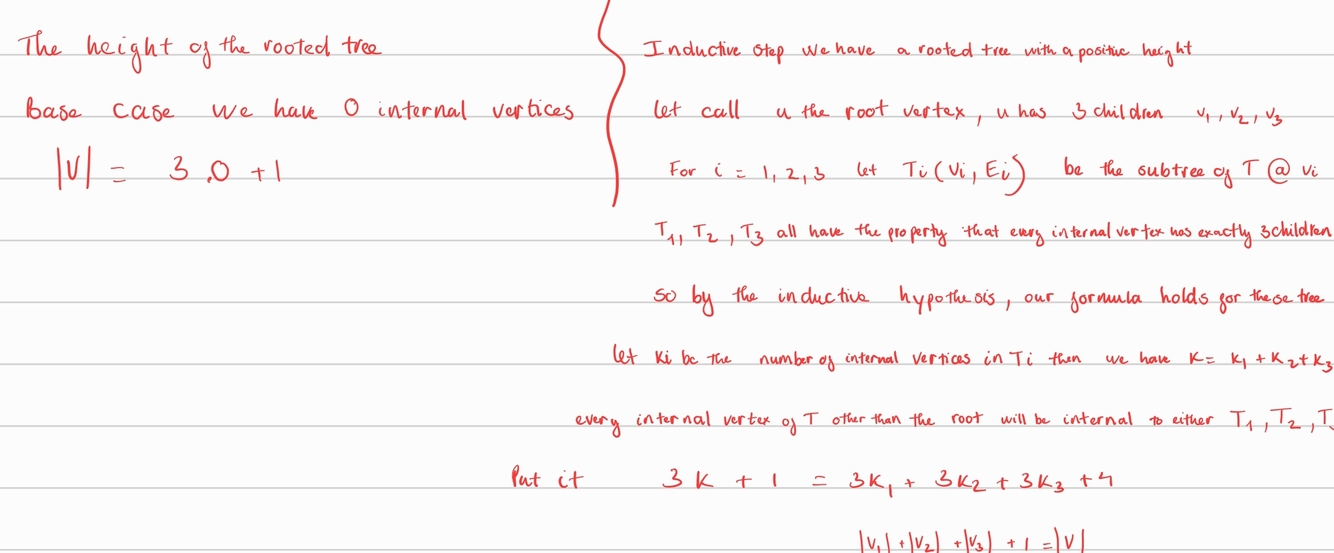 The height of the rooted tree
Base case we have 0 internal vertices
|V| = 3.0 +1
Inductive step we have a rooted tree with a positive height
let call u the root vertex, u has 3 children v₁, v₂, v₃
For i = 1, 2, 3 let Ti(Vi, Ei) be the subtree of T @ vi
T₁, T₂, T₃ all have the property that every internal vertex has exactly 3 children
so by the inductive hypothesis, our formula holds for these tree
let Ki be the number of internal vertices in Ti then we have K= K₁ + K₂ + K₃
every internal vertex of T other than the root will be internal to either T₁, T₂, T
Put it 3K + 1 = 3K₁ + 3K₂ + 3K₃ + 4
|V₁| + |V₂| + |V₃| + 1 = |V|